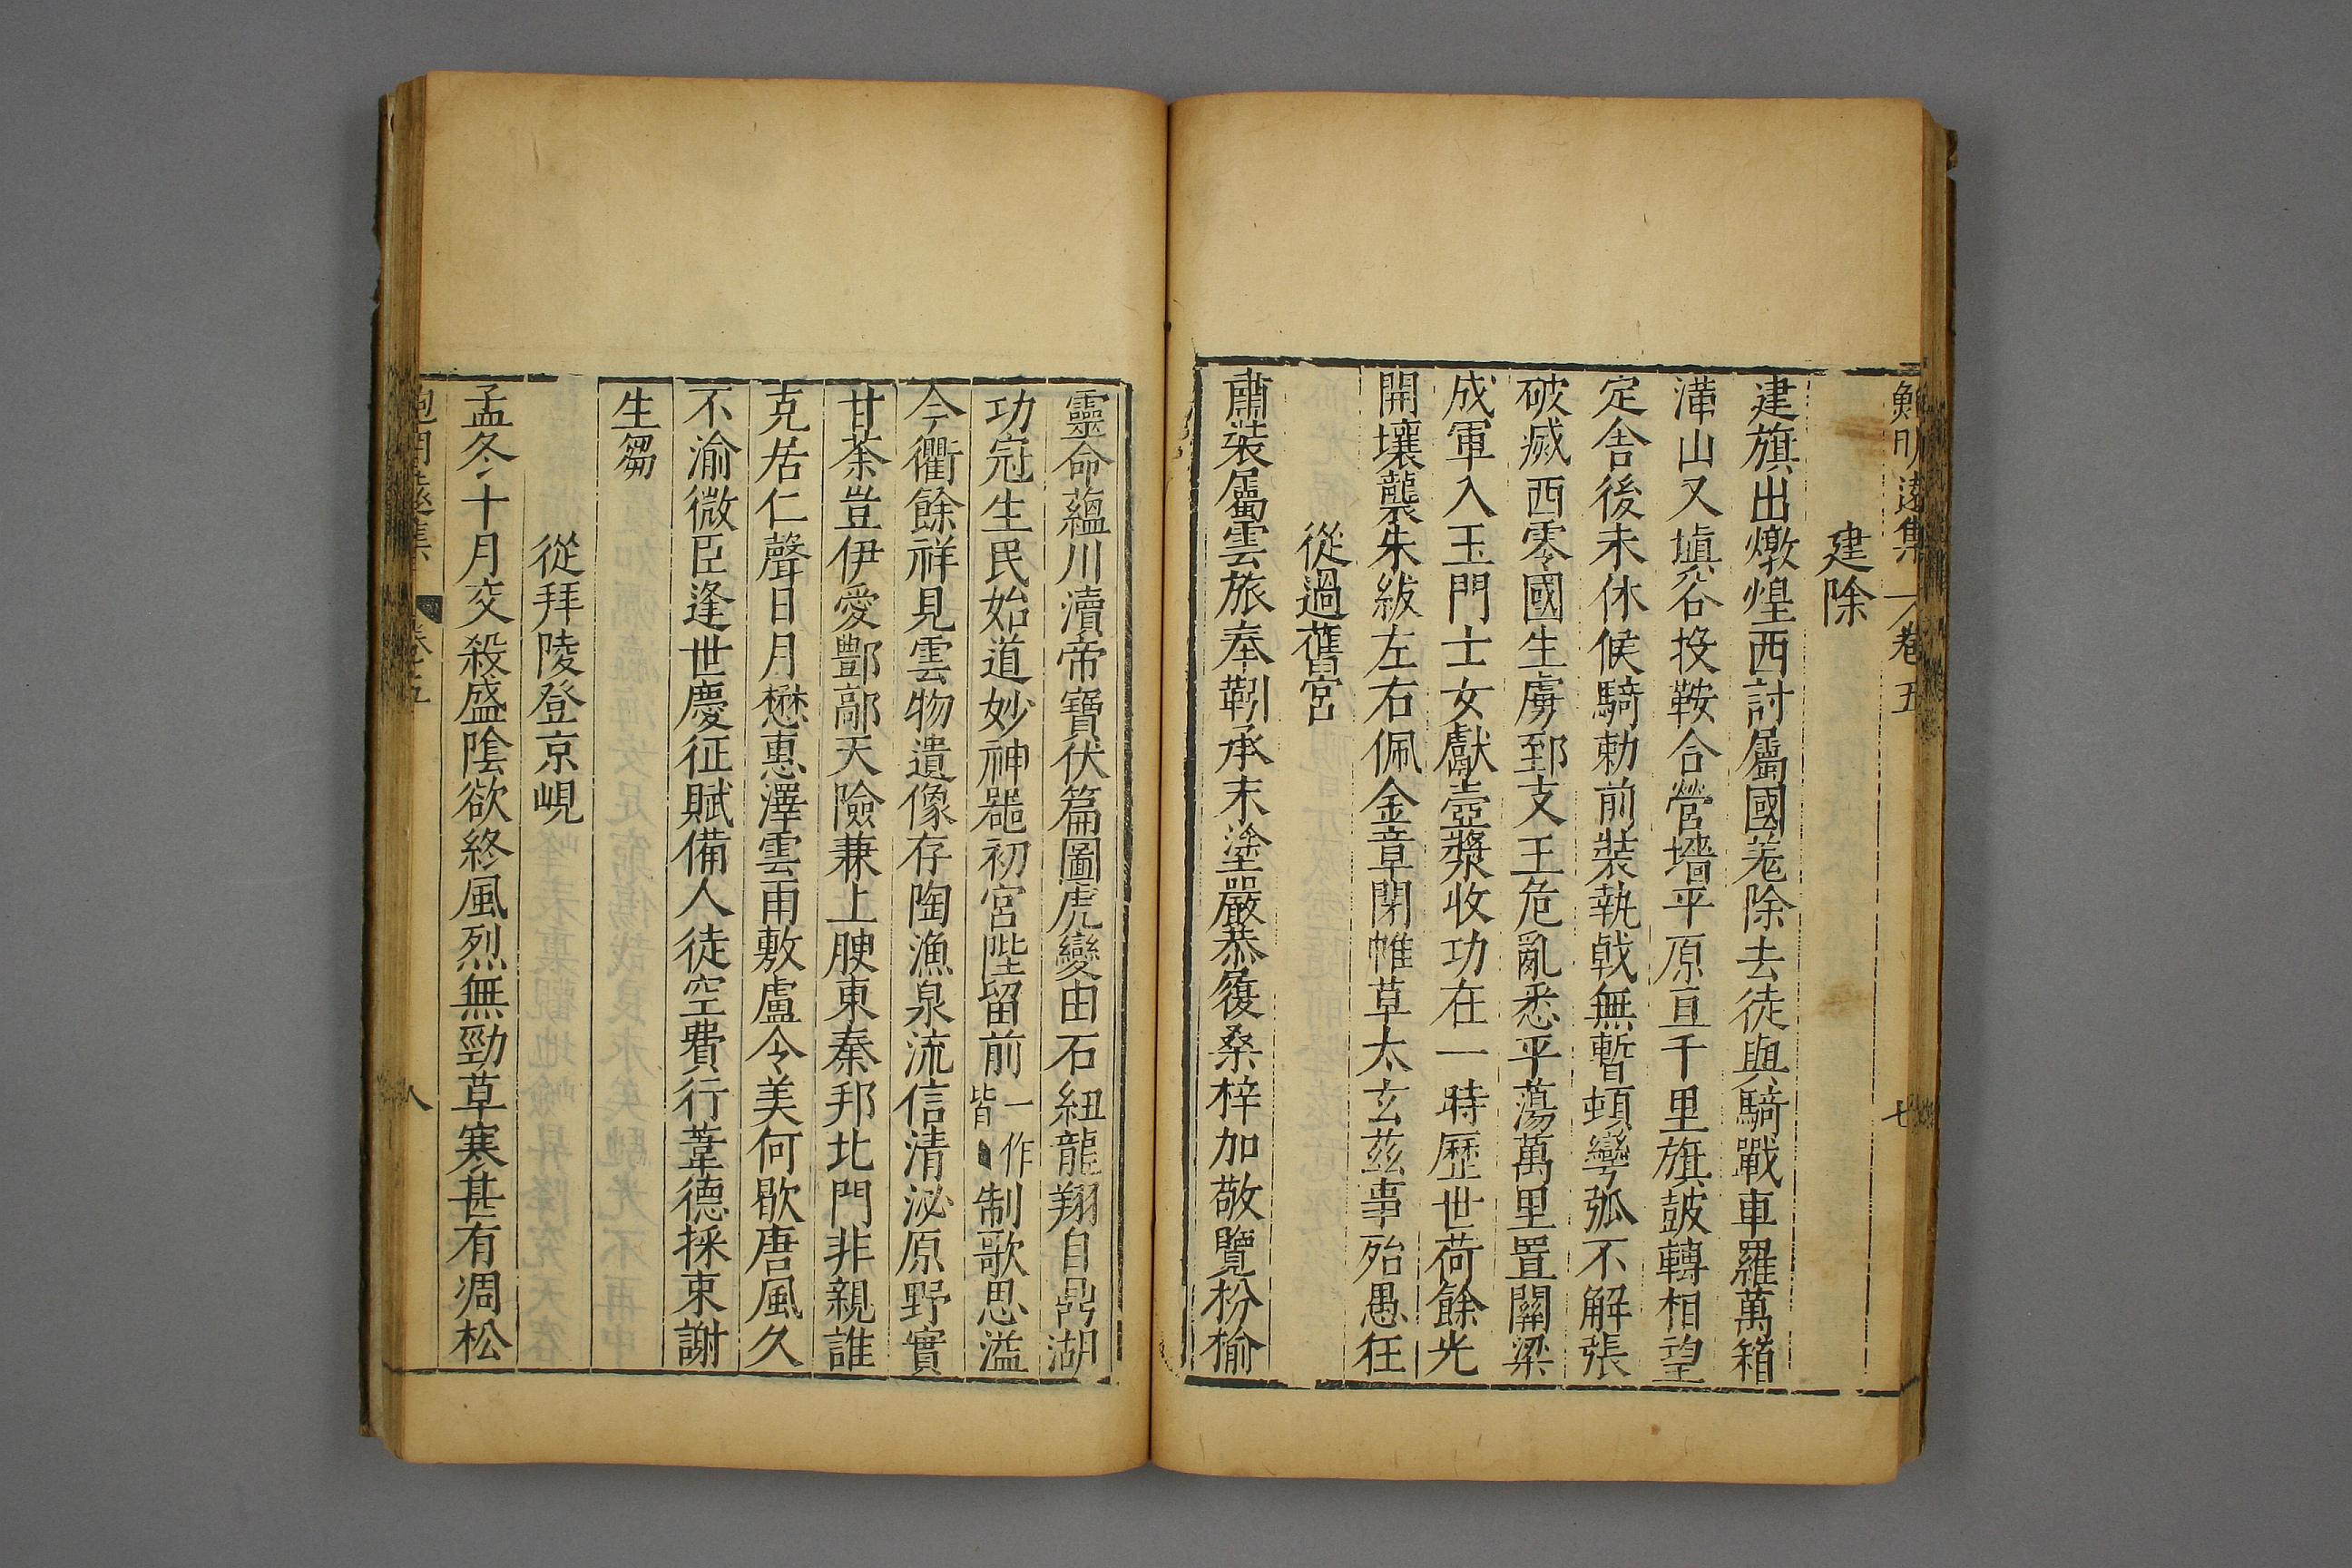 鮑明遠集 卷五 七
建除
建旗出燉煌西討屬國羌除去徒與騎戰車羅萬箱
滿山又塡谷投鞍合營墻平原亘千里旗鼓轉相望
定舍後未休候騎勅前裝執戟無暫頓彎弧不解張
破滅西零國生虜郅支王危亂悉平蕩萬里置關梁
成軍入玉門士女獻壺漿收功在一時歷世荷餘光
開壤襲朱紱左右佩金章閉帷草太玄茲事殆愚狂
從過舊宮
肅裝屬雲旅奉靷承末塗嚴恭履桑梓加敬覽枌榆
靈命蘊川瀆帝寶伏篇圖虎變由石紐龍翔自鼎湖
功冠生民始道妙神器初宮陛留前一作皆制歌思溢
今衢餘祥見雲物遺像存陶漁泉流信清泌原野實
甘荼豈伊愛酆鄗天險兼上腴東秦邦北門非親誰
克居仁聲日月懋惠澤雲雨敷盧令美何歇唐風久
不渝微臣逢世慶征賦備人徒空費行葦德採束謝
生芻
從拜陵登京峴
孟冬十月交殺盛陰欲終風烈無勁草寒甚有凋松
鮑明遠集 卷五 八